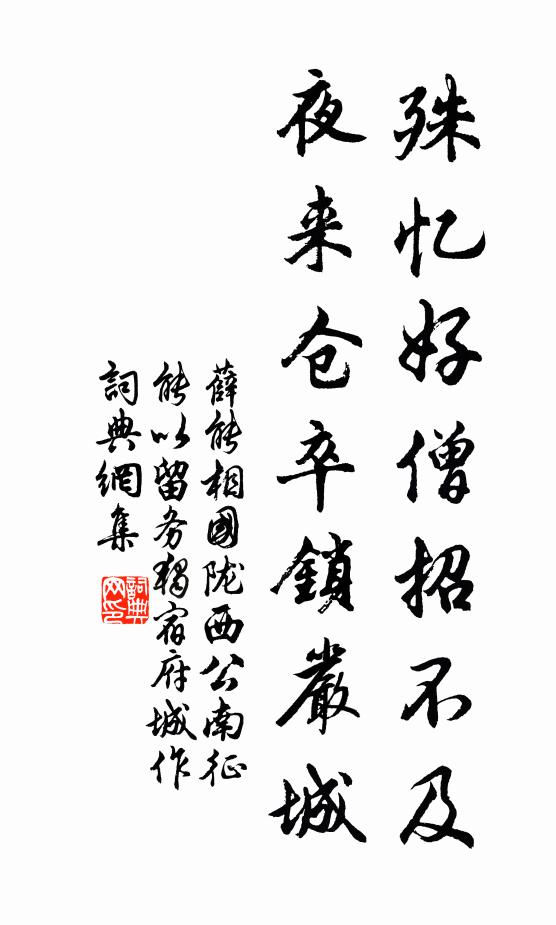 殊忆好僧招不及
夜来仓卒鎖嚴城
薛能相國陇西公南征
能以留务獨宿府城作
詞典網集
詞典
文印